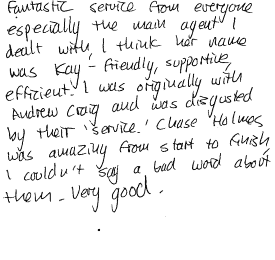 Fantastic service from everyone
especially the main agent I
dealt with, I think her name
was Kay - friendly, supportive,
efficient. I was originally with
Andrew Craig and was disgusted
by their 'service.' Chase Holmes
was amazing from start to finish
I couldn't say a bad word about
them - very good.